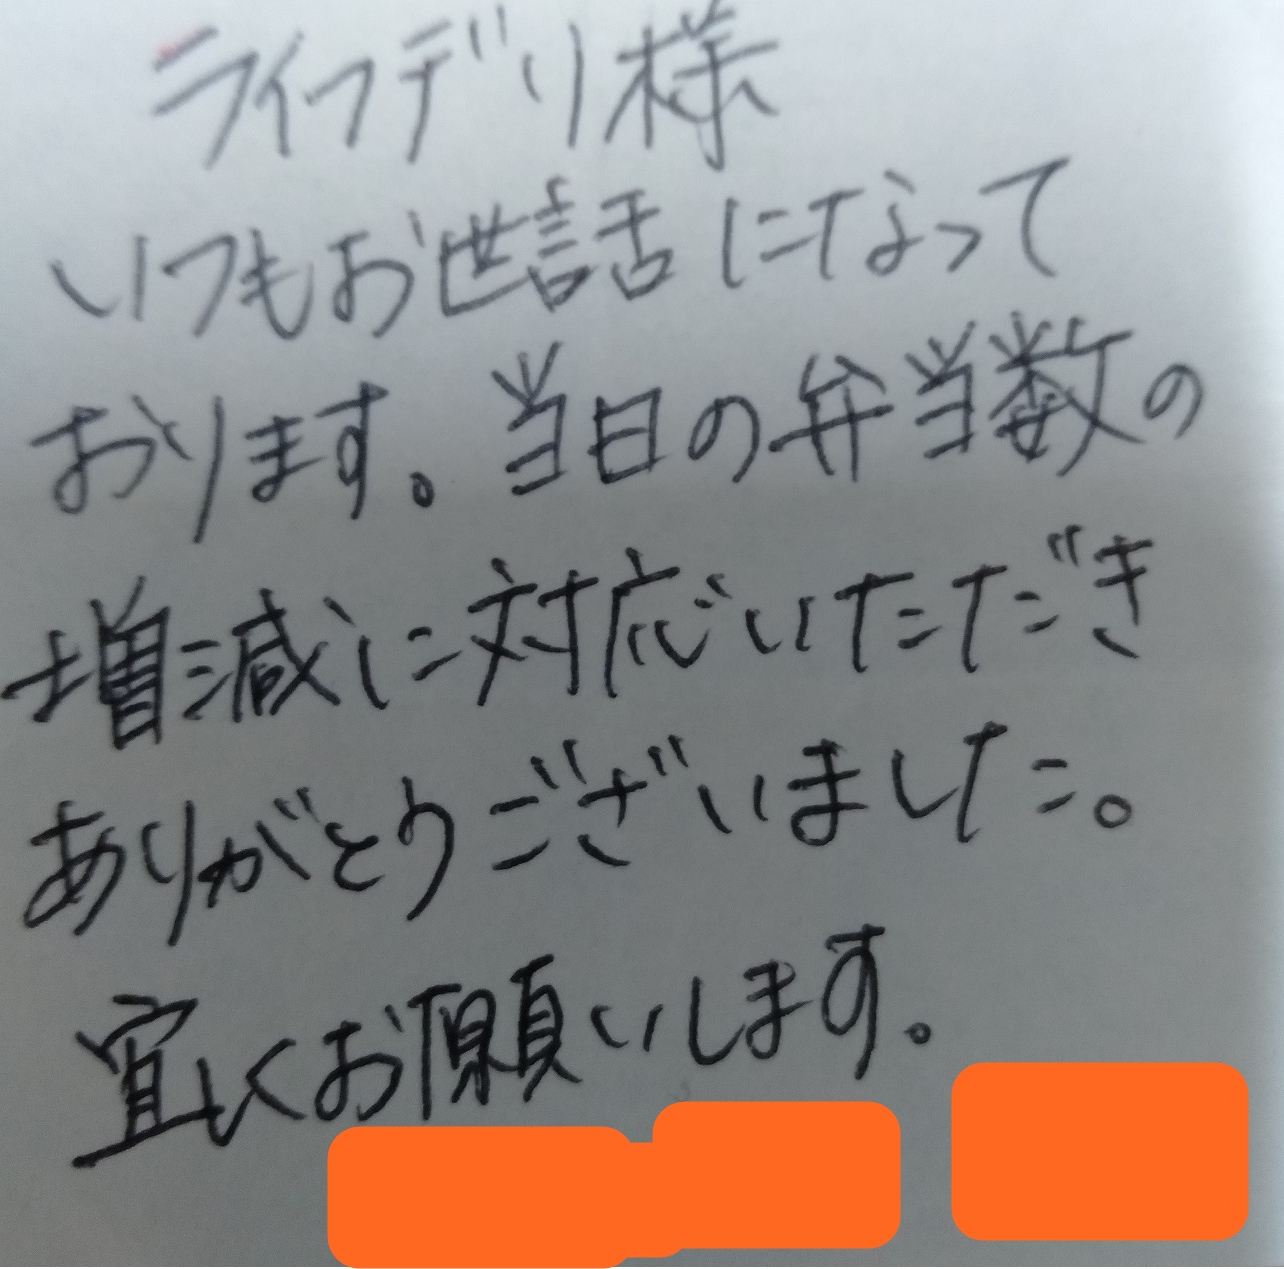 ライフデリ様
いつもお世話になって
おります。当日の弁当数の
増減に対応いただき
ありがとうございました。
宜しくお願いします。